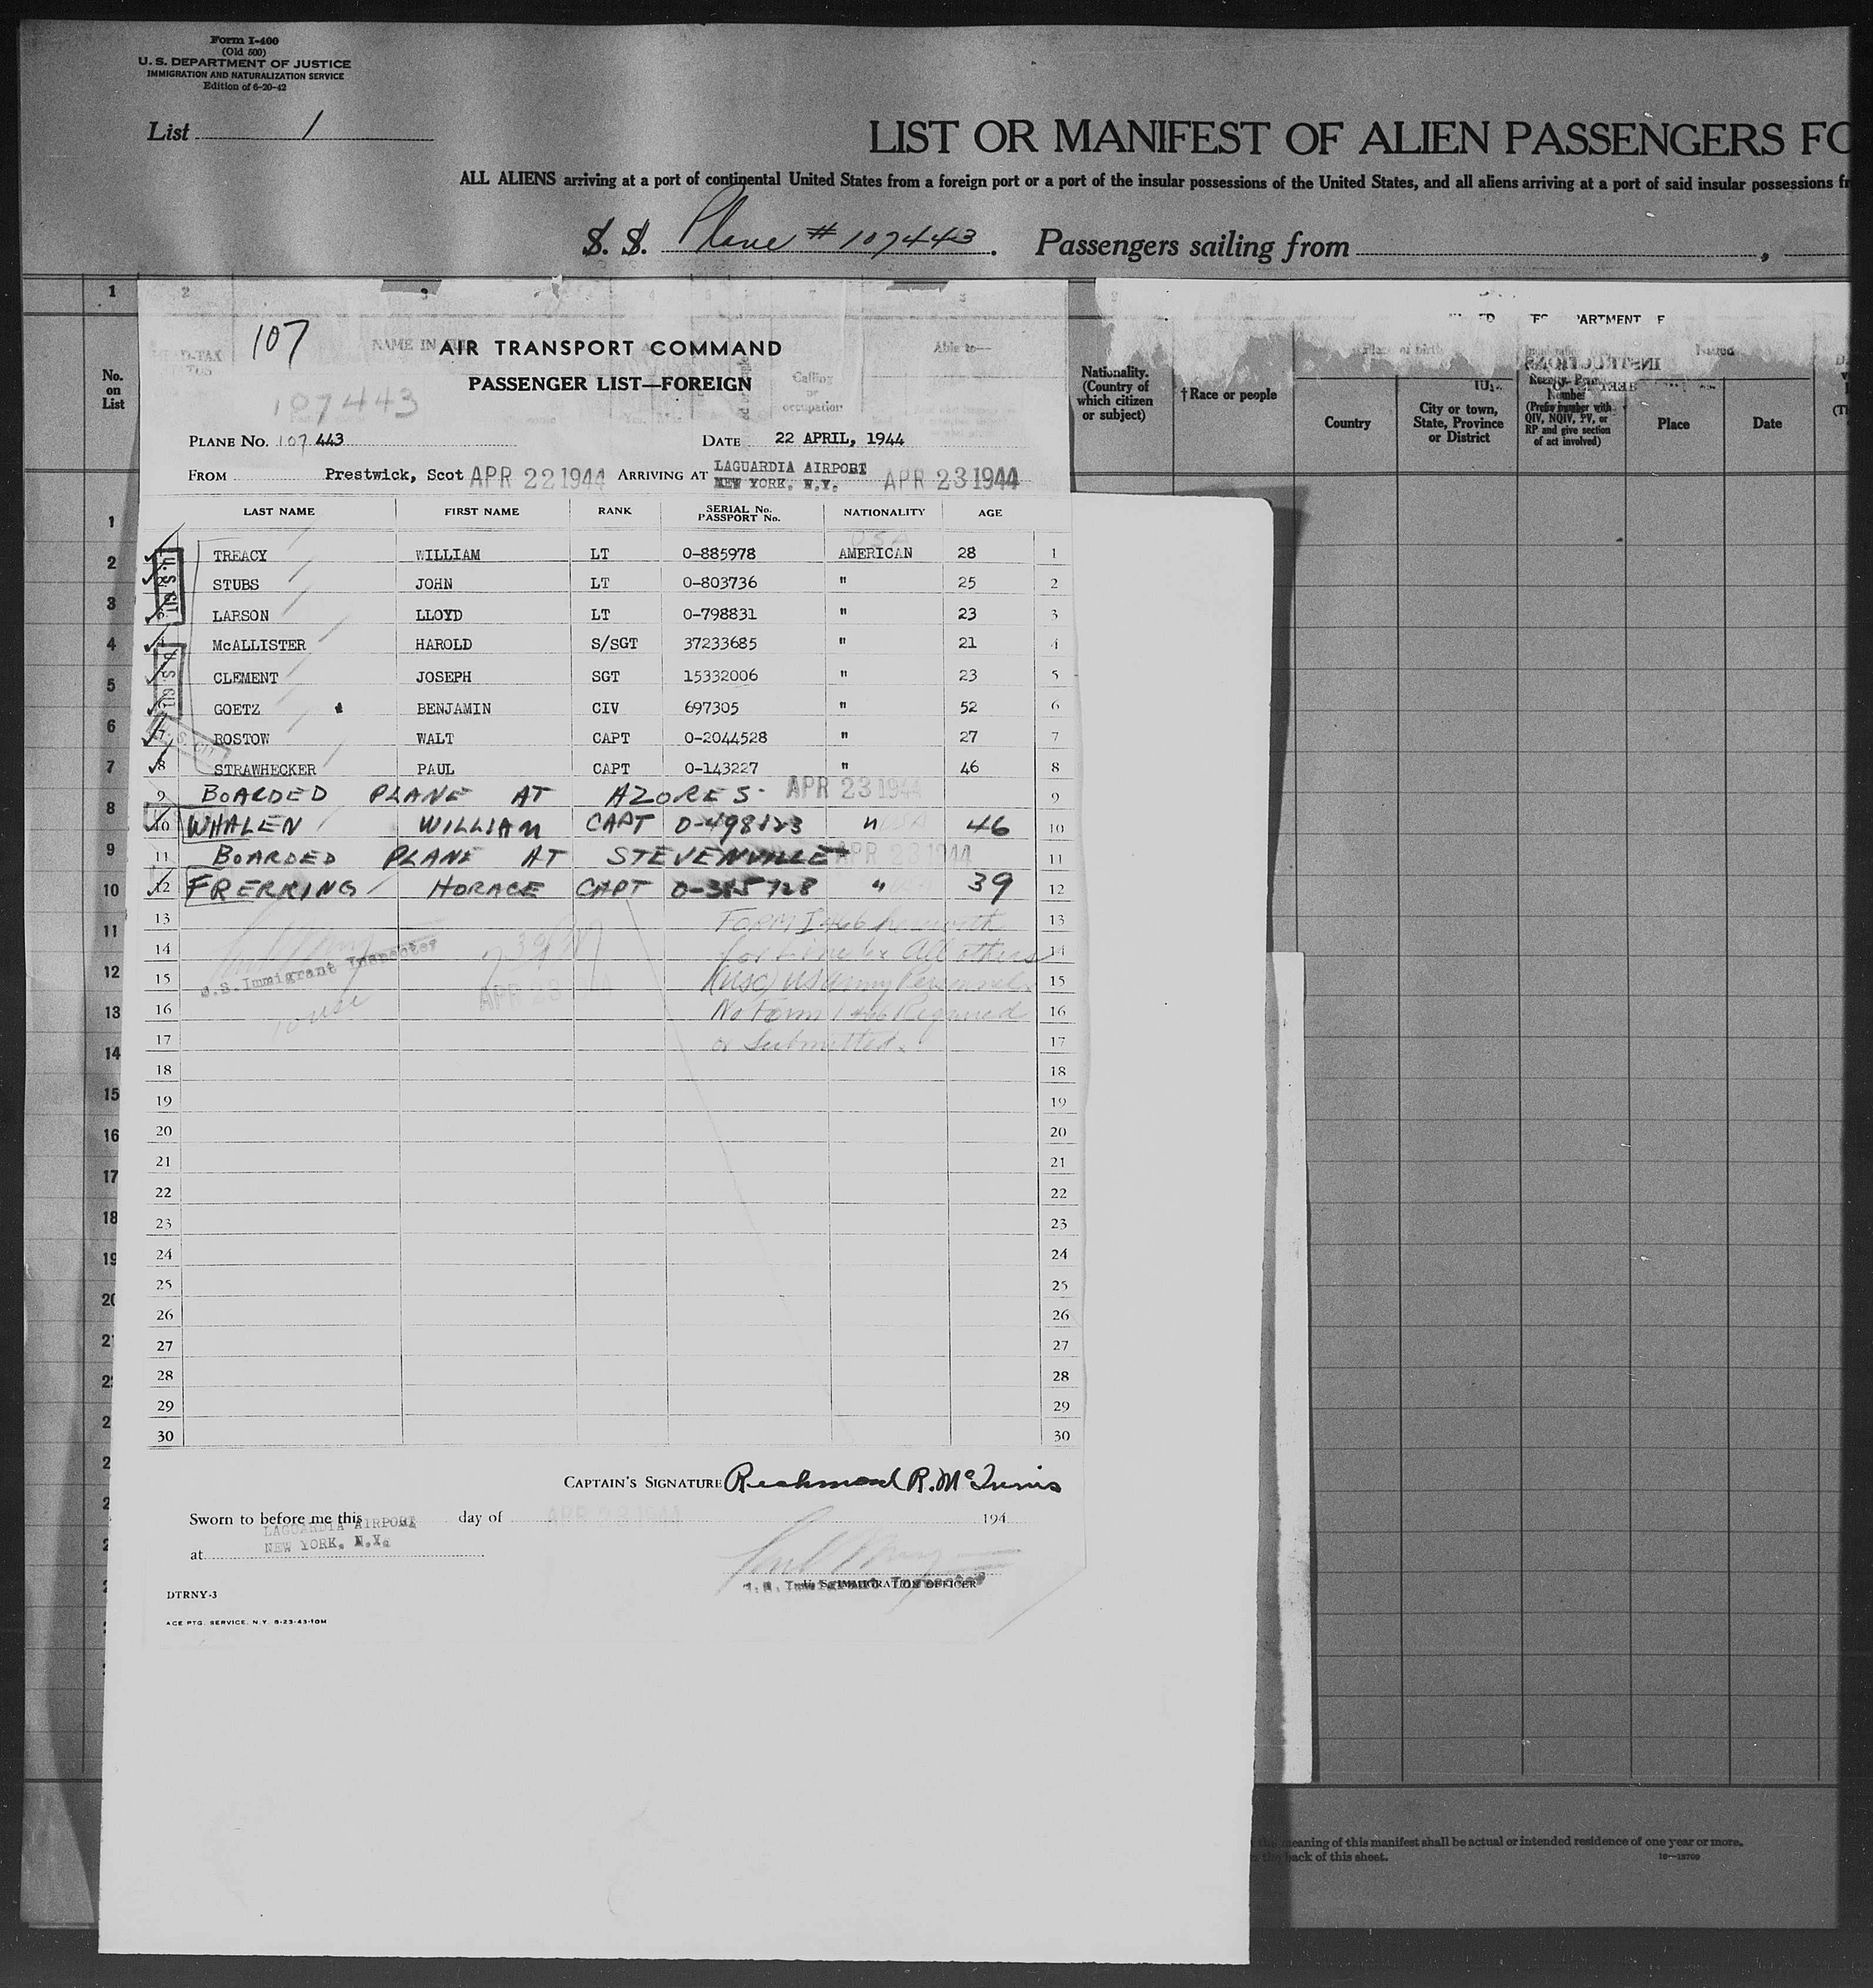 Form I-400
(Old 500)
U. S. DEPARTMENT OF JUSTICE
IMMIGRATION AND NATURALIZATION SERVICE
Edition of 6-20-42
List 1
LIST OR MANIFEST OF ALIEN PASSENGERS FO
ALL ALIENS arriving at a port of continental United States from a foreign port or a port of the insular possessions of the United States, and all aliens arriving at a port of said insular possessions fr
S. S. Plane # 107443. Passengers sailing from
107
AIR TRANSPORT COMMAND
PASSENGER LIST—FOREIGN
107443
PLANE No. 107 443 DATE 22 APRIL, 1944
FROM Prestwick, Scot APR 22 1944 ARRIVING AT LAGUARDIA AIRPORT NEW YORK, N.Y. APR 23 1944
LAST NAME FIRST NAME RANK SERIAL No. PASSPORT No. NATIONALITY AGE
TREACY WILLIAM LT O-885978 AMERICAN 28 1
STUBS JOHN LT O-803736 " 25 2
LARSON LLOYD LT O-798831 " 23 3
McALLISTER HAROLD S/SGT 37233685 " 21 4
CLEMENT JOSEPH SGT 15332006 " 23 5
GOETZ BENJAMIN CIV 697305 " 52 6
ROSTOW WALT CAPT O-2044528 " 27 7
8 STRAWHECKER PAUL CAPT O-143227 " 46 8
9 BOARDED PLANE AT AZORES- APR 23 1944 9
10 WHALEN WILLIAM CAPT O-498123 " 46 10
11 BOARDED PLANE AT STEVENVILLE APR 23 1944 11
12 FRERKING HORACE CAPT O-385728 " 39 12
13 FORM I 466 herewith 13
14 for Line 6. All others 14
U.S. Immigrant Inspector
15 (USC) US Army Personnel 15
APR 23 1944
16 No Form I 466 Required 16
17 or Submitted. 17
18 18
19 19
20 20
21 21
22 22
23 23
24 24
25 25
26 26
27 27
28 28
29 29
30 30
CAPTAIN'S SIGNATURE Richmond R. McInnis
Sworn to before me this day of APR 23 1944 194
LAGUARDIA AIRPORT
at NEW YORK, N.Y.
U. S. IMMIGRATION OFFICER
DTRNY-3
ACE PTG. SERVICE, N.Y. 8-23-43-10M
No. on List
Nationality. (Country of which citizen or subject)
†Race or people
Place of birth
Country
City or town, State, Province or District
Number (Prefix number with QIV, NQIV, PV, or RP and give section of act involved)
Issued
Place
Date
1
2
3
4
5
6
7
8
9
10
11
12
13
14
15
16
17
18
19
the meaning of this manifest shall be actual or intended residence of one year or more.
the back of this sheet.